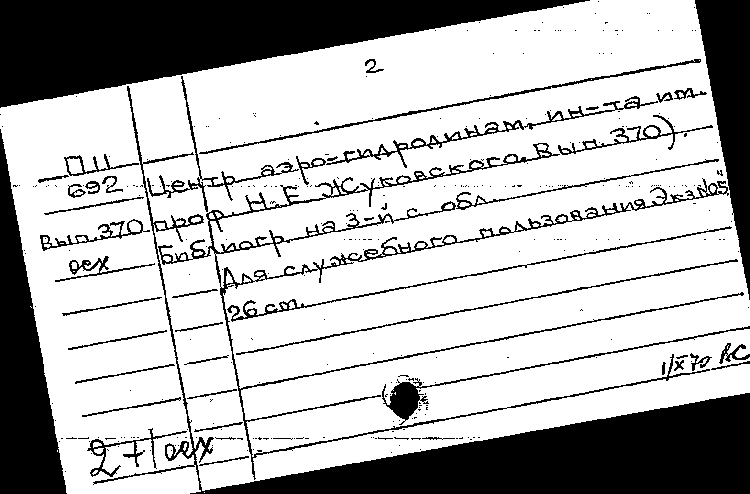 2
П 11
692
Вып. 370
оех
Центр аэро-гидродинам. ин-та им.
проф. Н. Е. Жуковского. Вып. 370).
Библиогр. на 3-й с обл.
Для служебного пользования Экз №05
26 cm.
1/X 70 АС
2+1 оех